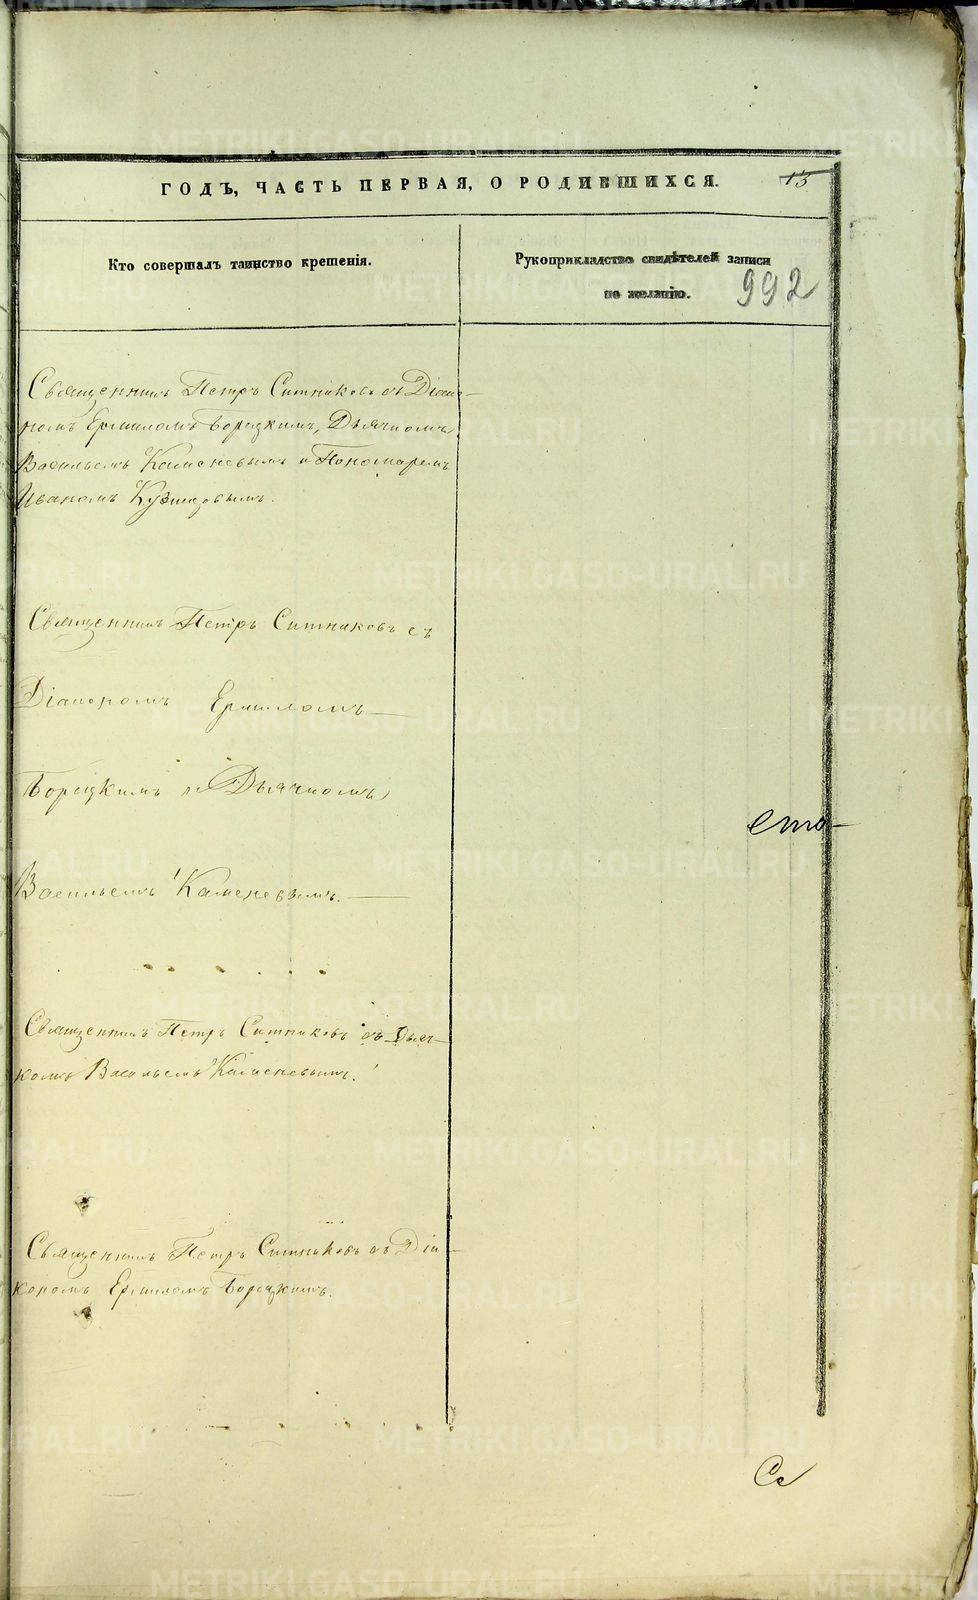 ГОДЪ, ЧАСТЬ ПЕРВАЯ, О РОДИВШИХСЯ. 13
Кто совершалъ таинство крещенія.
Рукоприкладство свидѣтелей записи
по желанію. 992
Священникъ Петръ Ситниковъ съ Діако-
номъ Ермиломъ Борецкимъ, Дьячкомъ
Васильемъ Каменевымъ и Пономаремъ
Иваномъ Кузнецовымъ.
Священникъ Петръ Ситниковъ съ
Діакономъ Ермиломъ
Борецкимъ и Дьячкомъ
ето
Васильемъ Каменевымъ.
Священникъ Петръ Ситниковъ съ Дьяч-
комъ Васильемъ Каменевымъ.
Священникъ Петръ Ситниковъ съ Діа-
кономъ Ермиломъ Борецкимъ.
Се
METRIKI.GASO-URAL.RU